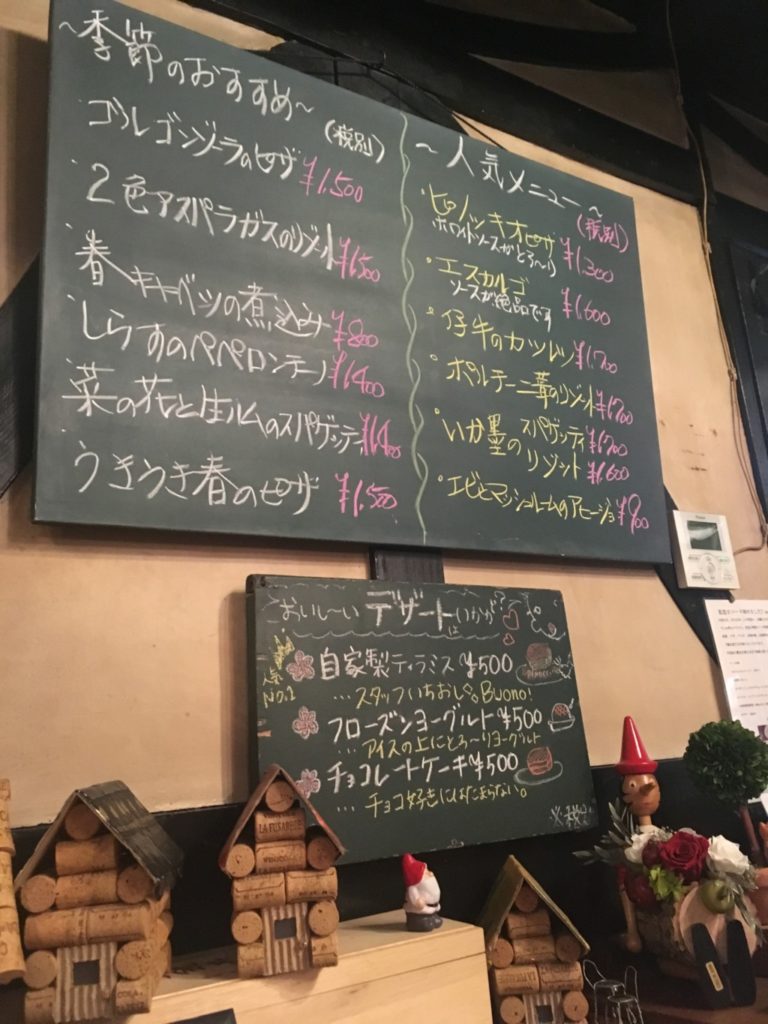 ~季節のおすすめ~
(税別)
ゴルゴンゾーラのピザ ¥1,500
・2色アスパラガスのリゾット ¥1,500
・春キャベツの煮込み ¥800
・しらすのペペロンチーノ ¥1,400
・菜の花と生ハムのスパゲッティ ¥1,400
・うきうき春のピザ ¥1,500
~人気メニュー~
(税別)
・ピノッキオピザ ¥1,300
ホワイトソースがとろ~り
・エスカルゴ ¥1,600
ソースが絶品です
・仔牛のカツレツ ¥1,700
・ポルチーニ茸のリゾット ¥1,700
・いか墨の スパゲッティ ¥1,700
リゾット ¥1,600
・エビとマッシュルームのアヒージョ ¥900
おいし~い デザートはいかが?
人気No.1
自家製ティラミス ¥500
...スタッフいちおし。Buono!
フローズンヨーグルト ¥500
...アイスの上にとろ~りヨーグルト
チョコレートケーキ ¥500
...チョコ好きにはたまらない。
LA FUSARA